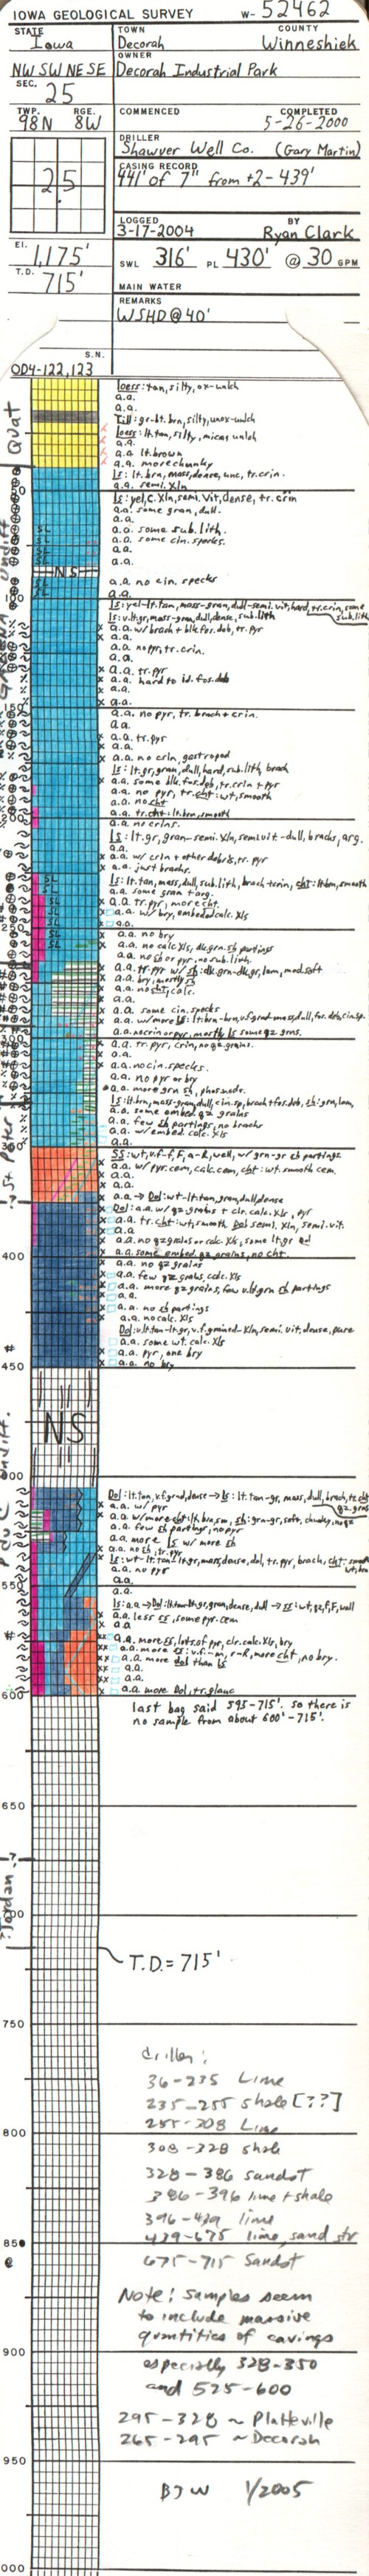 IOWA GEOLOGICAL SURVEY W- 52462
STATE Iowa
TOWN Decorah
COUNTY Winneshiek
OWNER
NW SW NE SE
Decorah Industrial Park
SEC. 25
TWP. 98N RGE. 8W
COMMENCED
COMPLETED 5-26-2000
DRILLER
Shawver Well Co. (Gary Martin)
CASING RECORD
441' of 7" from +2-439'
25
LOGGED 3-17-2004
BY Ryan Clark
El. 1,175'
SWL 316' PL 430' @ 30 GPM
T.D. 715'
MAIN WATER
REMARKS
WSHD @ 40'
S.N.
OD4-122,123
Quat
loess: tan, silty, ox-unlch
a.a.
a.a.
Till: gr-bt. brn, silty, unox-unlch
loess: lt. tan, silty, micas unlch
a.a.
a.a. lt. brown
a.a. more chunky
ls: lt. brn, mass, dense, unc, tr. crin.
a.a. semi. Xln
50
ls: yel, c. Xln, semi. Vit, dense, tr. crin
a.a. some gran, dull.
a.a.
SL a.a. some sub. lith.
SL a.a. some cin. specks.
SL a.a.
SL a.a.
NS
SL a.a. no cin. specks
SL a.a.
100
ls: yel-lt. tan, mass-gran, dull-semi. vit, hard, tr. crin, some sub. lith
ls: v. lt. gr, mass-gran, dull, dense, sub. lith
x a.a. w/ brach + blk. fos. deb, tr. pyr
x a.a.
a.a. no pyr, tr. crin.
a.a.
x a.a. tr. pyr
x a.a. hard to id. fos. deb
x a.a.
x a.a.
150
a.a. no pyr, tr. brach + crin.
a.a.
x a.a. tr. pyr
x a.a.
x a.a. no crin, gastropod
ls: lt. gr, gran, dull, hard, sub. lith, brach
x a.a. some blk. fos. deb, tr. crin + pyr
a.a. no pyr, tr. cht: wt, smooth
a.a. no cht
a.a. tr. cht: lt. brn, smooth
200
a.a. no crins.
ls: lt. gr, gran-semi. Xln, semi. vit-dull, brachs, arg.
a.a.
x a.a. w/ crin + other debris, tr. pyr
x a.a. just brachs.
SL ls: lt. tan, mass, dull, sub. lith, brach + crin, cht: lt. brn, smooth
a.a. some gran + arg.
SL x a.a. tr. pyr, more cht
SL x a.a. w/ bry, embed. calc. Xls
SL x a.a.
250
SL a.a. no bry
SL a.a. no calc. Xls, dk. grn sh partings
a.a. no sh or pyr, no sub. lith.
x a.a. tr. pyr w/ sh: dk. grn-dk. gr, lam, mod. soft
x a.a. bry, mostly sh
x a.a. no cht, calc.
x a.a.
x a.a. some cin. specks
x a.a. w/ more ls: lt. brn-brn, v. f. grnd-mass, dull, fos. deb, cin. sp.
a.a. no crin or pyr, mostly ls some qz grns.
300
x a.a. tr. pyr, crin, no qz. grains.
x a.a.
a.a. no cin. specks.
a.a. no pyr or bry
a.a. more grn sh, phos. nods.
ls: lt. brn, mass-gran, dull, cin. sp, brach + fos. deb, sh: grn, lam,
a.a. some embed qz grains
a.a. few sh partings, no brachs
a.a. w/ embed. calc. Xls
a.a.
350
St. Peter
SS: wt, v. f-f, F, a-R, well, w/ grn-gr sh partings
x a.a. w/ pyr. cem, calc. cem, cht: wt. smooth cem.
x a.a.
x a.a.
x a.a. → Dol: wt-lt. tan, gran, dull, dense
?
x Dol: a.a. w/ qz grains + clr. calc. Xls, pyr
x a.a. tr. cht: wt, smooth Dol semi. Xln, semi. vit.
x a.a.
x a.a. no qz grains or calc Xls, some lt. gr Dol
400
x a.a. some embed. qz grains, no cht.
x a.a. no qz grains
x a.a. few qz grains, calc. Xls
x a.a. more qz grains, few v. lt. grn sh partings
x a.a.
x a.a. no sh partings
x a.a. no calc. Xls
Dol: v. lt. tan-lt. gr, v. f. grained-Xln, semi. vit, dense, pure
x a.a. some wt. calc. Xls
x a.a. pyr, one bry
450
x a.a. no bry
NS
500
PduC Undiff.
Dol: lt. tan, v. f. grnd, dense → ls: lt. tan-gr, mass, dull, brach, tr. cht qz. grns
x a.a. w/ pyr
x a.a. w/ more cht: lt. brn, sm, sh: grn-gr, soft, chunky, no qz
a.a. few sh partings, no pyr
a.a. more ls w/ more sh
x a.a. no sh, tr. pyr
x ls: wt-lt. tan-lt. gr, mass, dense, dol, tr. pyr, brach, cht: smooth wt, brn
a.a. no pyr
550
a.a.
a.a.
ls: a.a → Dol: lt. tan-lt. gr, gran, dense, dull → SS: wt, qz, f, F, well
x a.a. less SS, some pyr. cem
x a.a.
xx a.a. more SS, lots of pyr, clr. calc. Xls, bry
xx a.a. more SS: v. f.-m, r-R, more cht, no bry.
xx a.a. more dol than ls
xx a.a.
xx a.a.
600
xx a.a. more Dol, tr. glauc
last bag said 595-715'. so there is
no sample from about 600'-715'.
650
?
?Jordan
700
T.D. = 715'
750
driller:
36-235 Lime
235-255 shale [??]
255-308 Lime
800
308-328 shale
328-386 sandst
386-396 lime + shale
396-439 lime
439-675 lime, sand str
850
675-715 Sandst
Note! Samples seem
to include massive
quantities of cavings
900
especially 328-350
and 575-600
295-328 ~ Platteville
265-295 ~ Decorah
950
BJW 1/2005
000